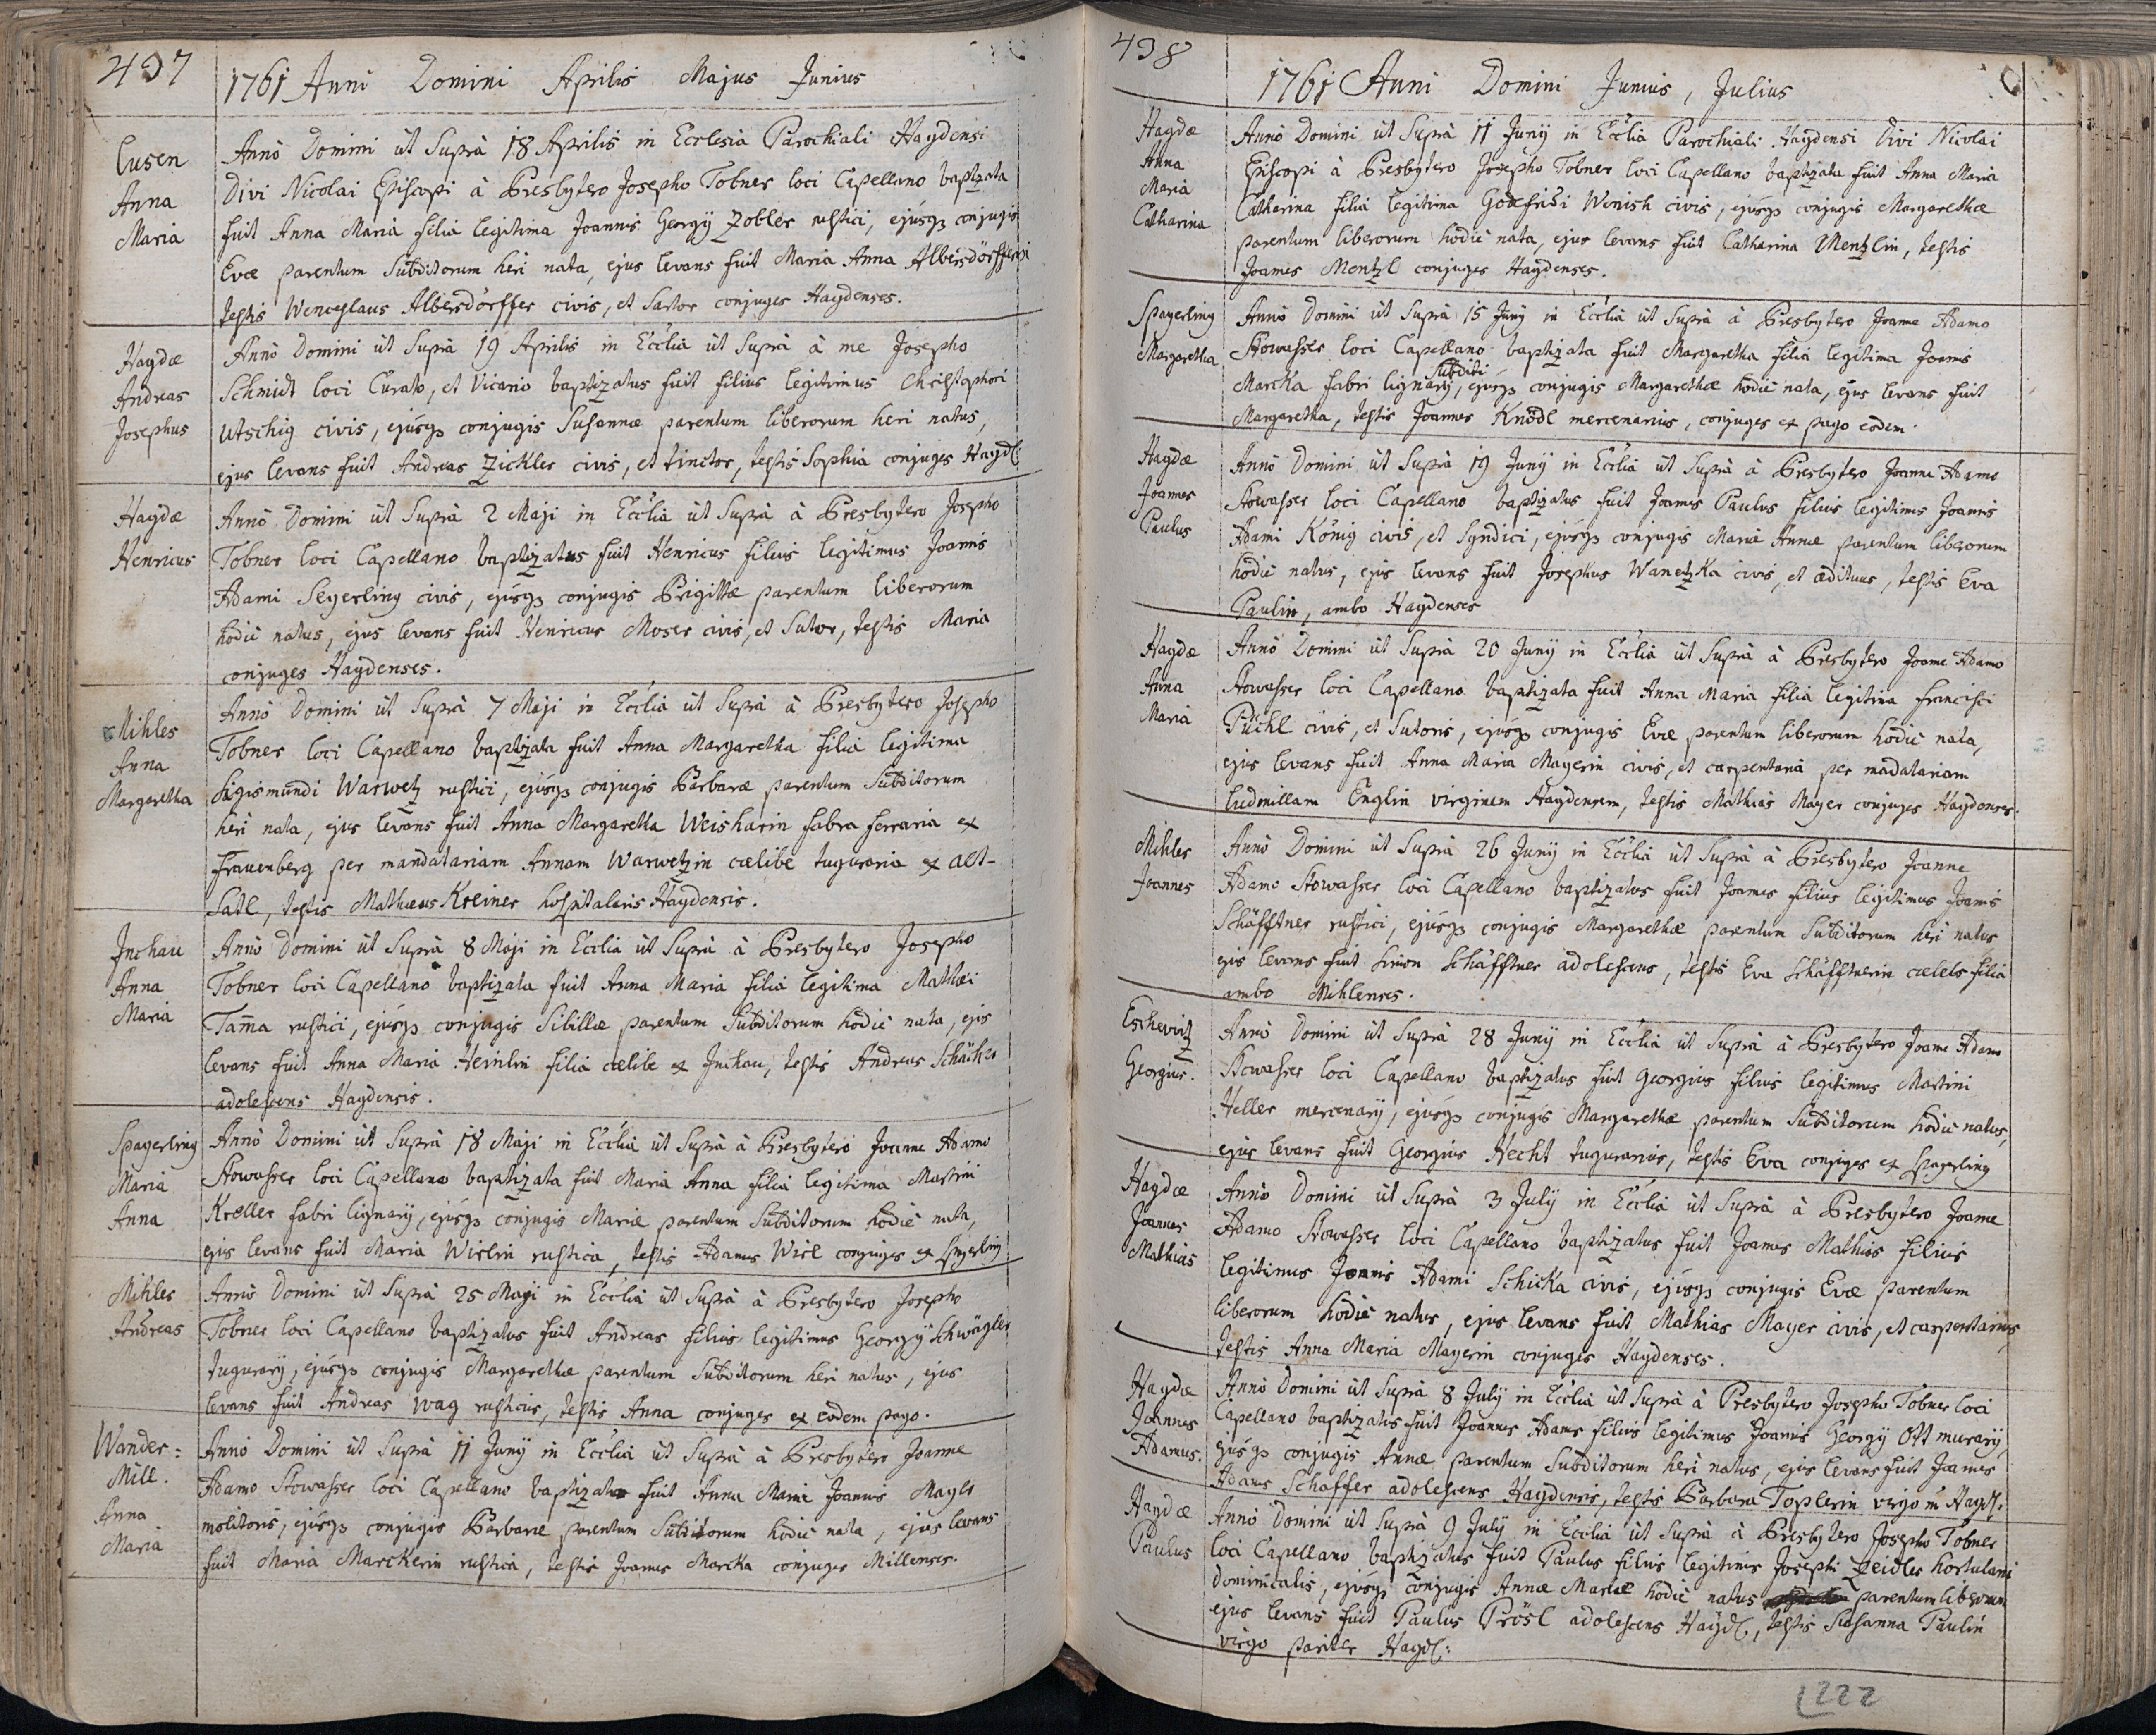 497
1761 Anni Domini Aprilis Majus Junius
Lusen
Anna
Maria
Anno Domini ut Suprà 18 Aprilis in Ecclesia Parochiali Haydensi
Divi Nicolai Episcopi à Presbytero Josepho Tobner loci Capellano baptizata
fuit Anna Maria filia legitima Joannis Georgÿ Zobler rustici, ejúsqз conjugis
Evæ parentum Subditorum heri nata, ejus levans fuit Maria Anna Albersdörfferin
testis Wenceslaus Albersdörffer civis, et Sartor conjuges Haydenses.
Haydæ
Andreas
Josephus
Anno Domini ut Suprà 19 Aprilis in Ecclia ut Suprà à me Josepho
Schmidt loci Curato, et Vicario baptizatus fuit filius legitimus Christophori
Utschig civis, ejúsqз conjugis Susannæ parentum liberorum heri natus,
ejus levans fuit Andreas Zickler civis, et tinctor, testis Sophia conjuges Hayd:
Haydæ
Henricus
Anno Domini ut Suprà 2 Maji in Ecclia ut Suprà à Presbytero Josepho
Tobner loci Capellano baptizatus fuit Henricus filius legitimus Joannis
Adami Segerling civis, ejúsqз conjugis Brigittæ parentum liberorum
hodiè natus, ejus levans fuit Henricus Moser civis, et Sutor, testis Maria
conjuges Haydenses.
Mihles
Anna
Margaretha
Anno Domini ut Suprà 7 Maji in Ecclia ut Suprà à Presbytero Josepho
Tobner loci Capellano baptizata fuit Anna Margaretha filia legitima
Sigismundi Warwetz rustici, ejúsqз conjugis Barbaræ parentum Subditorum
heri nata, ejus levans fuit Anna Margaretha Weisharin fabra ferraria ex
Frauenberg per mandatariam Annam Warwetzin cælibe tuguraria ex Alt-
Satl, testis Mathæus Kreiner hospitalaris Haydensis.
Inchau
Anna
Maria
Anno Domini ut Suprà 8 Maji in Ecclia ut Suprà à Presbytero Josepho
Tobner loci Capellano baptizata fuit Anna Maria filia legitima Mathæi
Tam̄a rustici, ejúsqз conjugis Sibillæ parentum Subditorum hodiè nata, ejus
levans fuit Anna Maria Heinlin filia cælibe ex Inchau, testis Andreas
adolescens Haydensis.
Spayerling
Maria
Anna
Anno Domini ut Suprà 18 Maji in Ecclia ut Suprà à Presbytero Joanne Adamo
Stowasser loci Capellano baptizata fuit Maria Anna filia legitima Martini
Kreller fabri lignarÿ, ejúsqз conjugis Mariæ parentum Subditorum hodiè nata,
ejus levans fuit Maria Wirlin rustica, testis Adamus Wirl conjuges ex Spayerling
Mihles
Andreas
Anno Domini ut Suprà 25 Maji in Ecclia ut Suprà à Presbytero Josepho
Tobner loci Capellano baptizatus fuit Andreas filius legitimus Georgÿ Schwägler
tugurarÿ, ejúsqз conjugis Margarethæ parentum Subditorum heri natus, ejus
levans fuit Andreas Wag rusticus, testis Anna conjuges ex eodem pago.
Wander:
Mill.
Anna
Maria
Anno Domini ut Suprà 11 Junÿ in Ecclia ut Suprà à Presbytero Joanne
Adamo Stowasser loci Capellano baptizata fuit Anna Maria Joannis Mayer
molitoris, ejúsqз conjugis Barbaræ parentum Subditorum hodiè nata, ejus levans
fuit Maria Marckerin rustica, testis Joannes Marcka conjuges Millenses.
498
1761 Anni Domini Junius, Julius
Haydæ
Anna
Maria
Catharina
Anno Domini ut Suprà 11 Junÿ in Ecclia Parochiali Haydensi Divi Nicolai
Episcopi à Presbytero Josepho Tobner loci Capellano baptizata fuit Anna Maria
Catharina filia legitima Godefridi Wenish civis, ejúsqз conjugis Margarethæ
parentum liberorum hodiè nata, ejus levans fuit Catharina Mentzlin, testis
Joannes Mentzl conjuges Haydenses.
Spayerling
Margaretha
Anno Domini ut Suprà 15 Junÿ in Ecclia ut Suprà à Presbytero Joanne Adamo
Stowasser loci Capellano baptizata fuit Margaretha filia legitima Joannis
Marcka fabri lignarÿ, Subditi ejúsqз conjugis Margarethæ hodiè nata, ejus levans fuit
Margaretha, testis Joannes Knödl mercenarius, conjuges ex pago eodem.
Haydæ
Joannes
Paulus
Anno Domini ut Suprà 19 Junÿ in Ecclia ut Suprà à Presbytero Joanne Adamo
Stowasser loci Capellano baptizatus fuit Joannes Paulus filius legitimus Joannis
Adami König civis, et Syndici, ejúsqз conjugis Mariæ Annæ parentum liberorum
hodiè natus, ejus levans fuit Josephus Wanetzka civis, et ædituus, testis Eva
Paulin, ambo Haydenses
Haydæ
Anna
Maria
Anno Domini ut Suprà 20 Junÿ in Ecclia ut Suprà à Presbytero Joanne Adamo
Stowasser loci Capellano baptizata fuit Anna Maria filia legitima Francisci
Püchl civis, et Sutoris, ejúsqз conjugis Evæ parentum liberorum hodiè nata,
ejus levans fuit Anna Maria Mayerin civis, et carpentaria per madatariam
Ludmillam Englin virginem Haydensem, testis Mathias Mayer conjuges Haydenses.
Mihles
Joannes
Anno Domini ut Suprà 26 Junÿ in Ecclia ut Suprà à Presbytero Joanne
Adamo Stowasser loci Capellano baptizatus fuit Joannes filius legitimus Joannis
Schäfftner rustici, ejúsqз conjugis Margarethæ parentum Subditorum heri natus
ejus levans fuit Simon Schäfftner adolescens, testis Eva Schäfftnerin cælebs filia
ambo Mihlenses.
Eschevitz
Georgius.
Anno Domini ut Suprà 28 Junÿ in Ecclia ut Suprà à Presbytero Joanne Adamo
Stowasser loci Capellano baptizatus fuit Georgius filius legitimus Martini
Heller mercenarÿ, ejúsqз conjugis Margarethæ parentum Subditorum hodiè natus,
ejus levans fuit Georgius Hecht tugurarius, testis Eva conjuges ex Spayerling
Haydæ
Joannes
Mathias
Anno Domini ut Suprà 3 Julÿ in Ecclia ut Suprà à Presbytero Joanne
Adamo Stowasser loci Capellano baptizatus fuit Joannes Mathias filius
legitimus Joannis Adami Schicka civis, ejúsqз conjugis Evæ parentum
liberorum hodiè natus, ejus levans fuit Mathias Mayer civis, et carpentarius,
testis Anna Maria Mayerin conjuges Haydenses.
Haydæ
Joannes
Adamus.
Anno Domini ut Suprà 8 Julÿ in Ecclia ut Suprà à Presbytero Josepho Tobner loci
Capellano baptizatus fuit Joannes Adamus filius legitimus Joannis Georgÿ Ott murarÿ,
ejúsqз conjugis Annæ parentum Subditorum heri natus, ejus levans fuit Joannes
Adamus Schaffer adolescens Haydensis, testis Barbara Toplerin virgo in Hayd:
Haydæ
Paulus
Anno Domini ut Suprà 9 Julÿ in Ecclia ut Suprà à Presbytero Josepho Tobner
loci Capellano baptizatus fuit Paulus filius legitimus Josephi Zeidler hortulani
dominicalis, ejúsqз conjugis Annæ Mariæ hodiè natus parentum liberorum,
ejus levans fuit Paulus Prösl adolescens Hayd:, testis Susanna Paulin
virgo pariter Hayd:
222